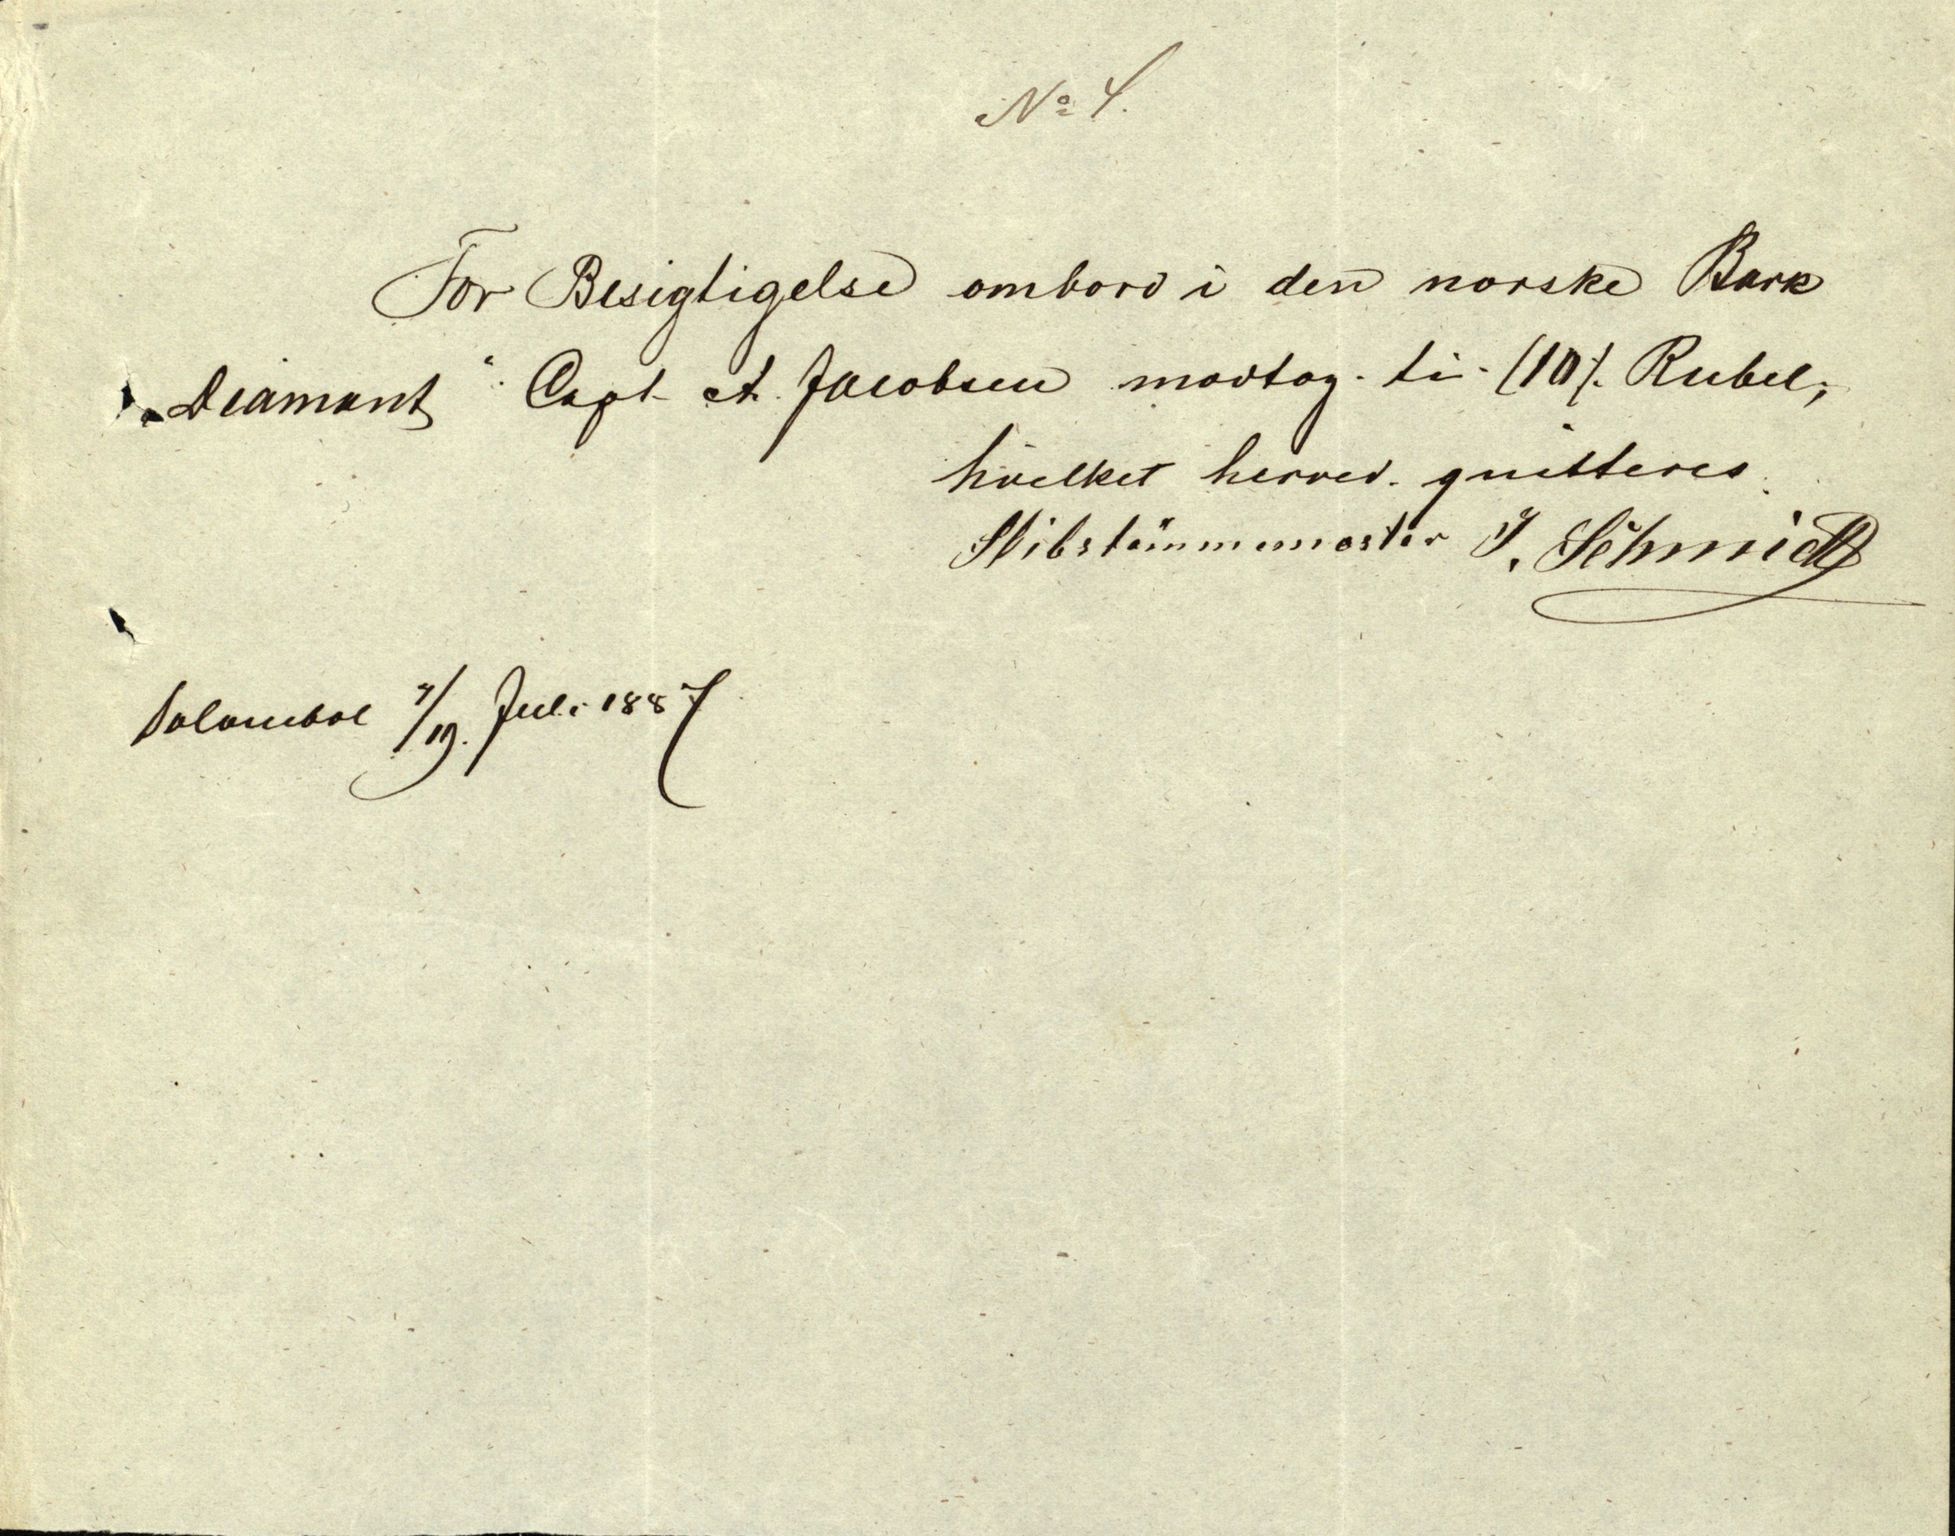 No 4.
For Besigtigelse ombord i den norske Bark
„Diamant“ Capt. A. Jacobsen modtog ti (10). Rubel,
hvilket herved qvitteres.
Skibstømmemester J. Schmidt
Solombol 7/19. Juli 1887